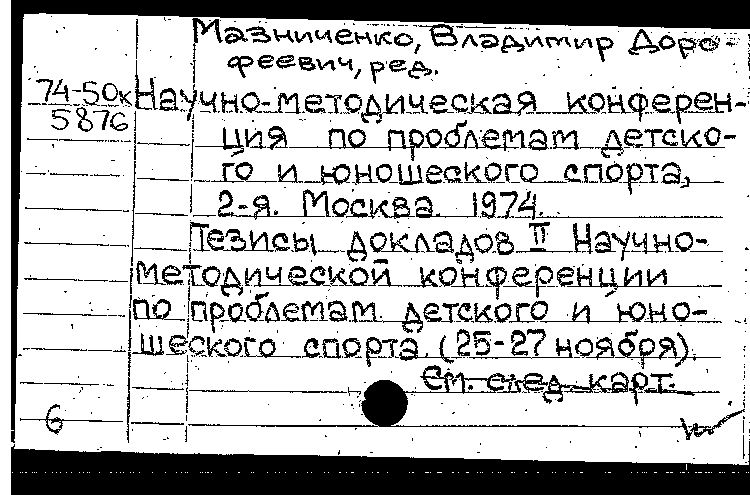 Мазниченко, Владимир Доро-
феевич, ред.
74-50к Научно-методическая конферен-
5876 ция по проблемам детско-
го и юношеского спорта,
2-я. Москва. 1974.
Тезисы докладов II Научно-
методической конференции
по проблемам детского и юно-
шеского спорта. (25-27 ноября).
См. след. карт.
6